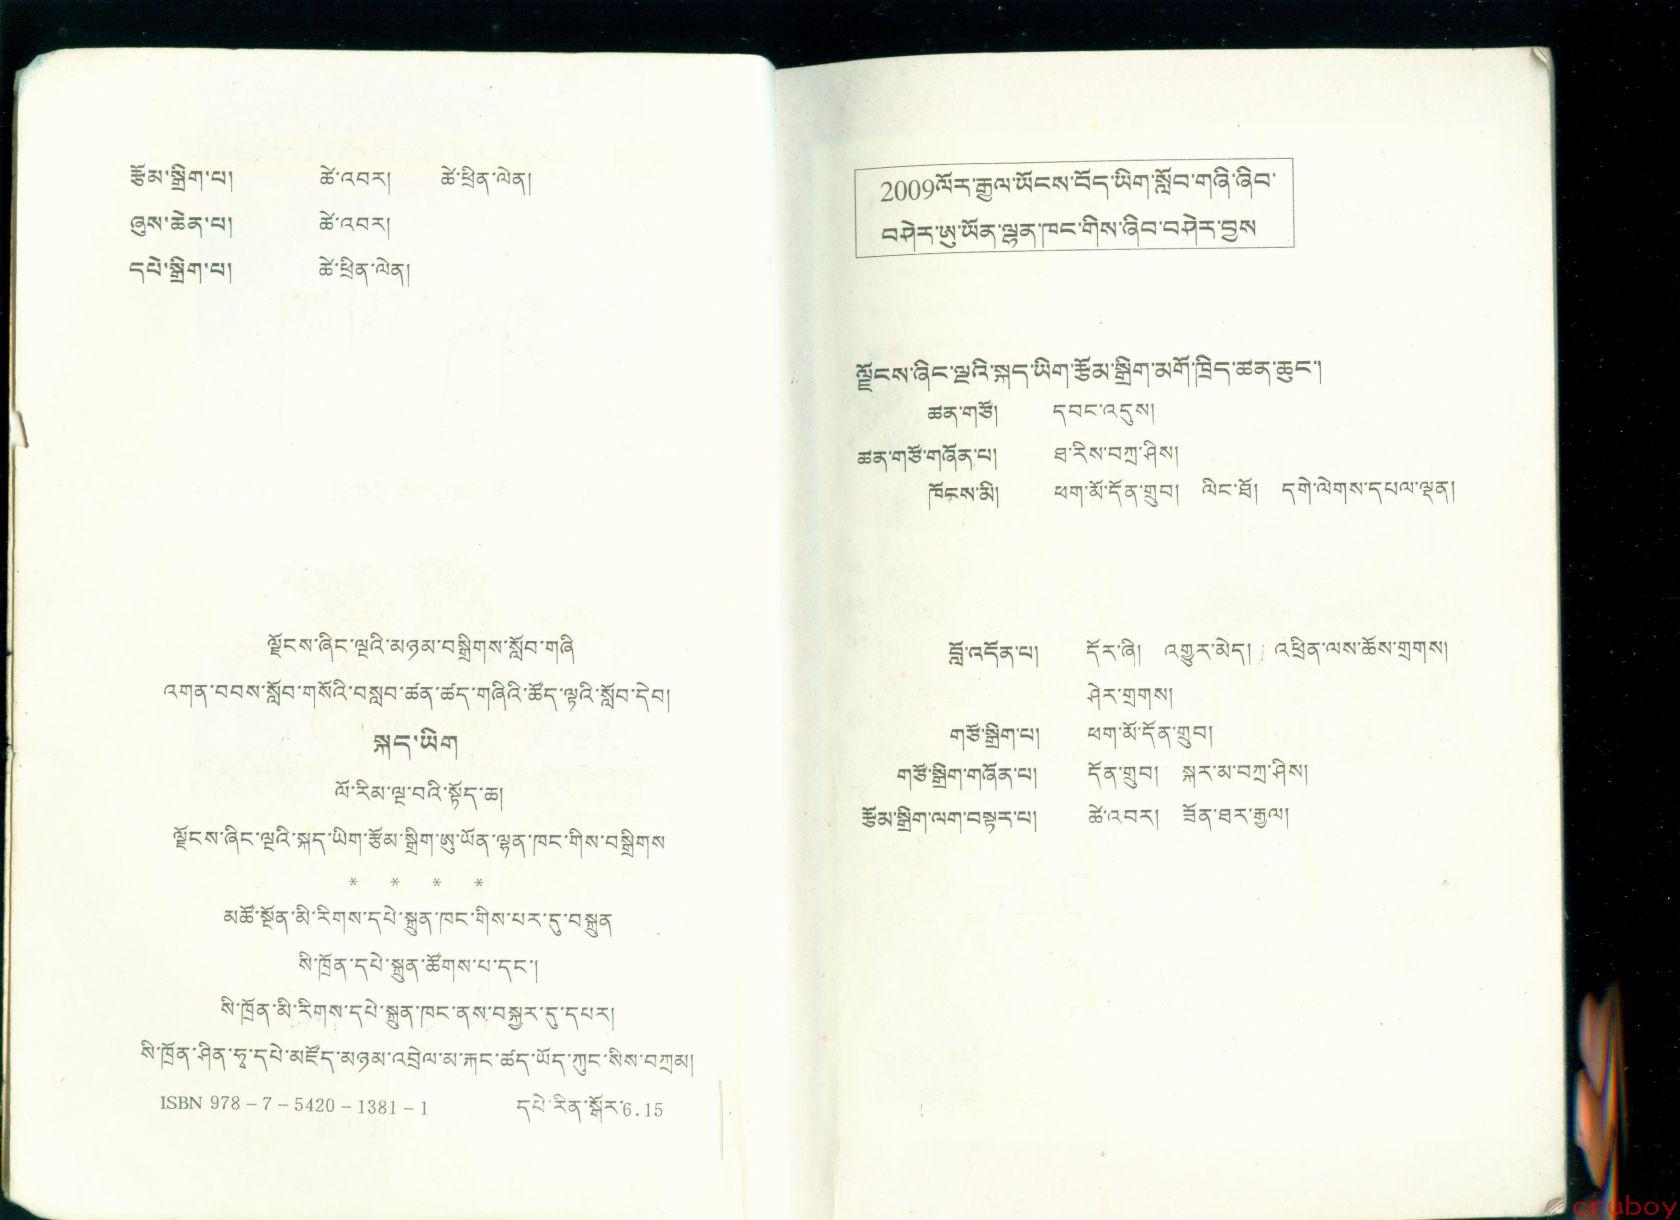 རྩོམ་སྒྲིག་པ། ཚེ་འབར། ཚེ་ཕྲིན་ལེན།
ཞུས་ཆེན་པ། ཚེ་འབར།
དཔེ་སྒྲིག་པ། ཚེ་ཕྲིན་ལེན།
ལྗོངས་ཞིང་ལྔའི་མཉམ་བསྒྲིགས་སློབ་གཞི
འགན་བབས་སློབ་གསོའི་བསླབ་ཚན་ཚད་གཞིའི་ཚོད་ལྟའི་སློབ་དེབ།
སྐད་ཡིག
ལོ་རིམ་ལྔ་བའི་སྟོད་ཆ།
ལྗོངས་ཞིང་ལྔའི་སྐད་ཡིག་རྩོམ་སྒྲིག་ཨུ་ཡོན་ལྷན་ཁང་གིས་བསྒྲིགས
* * * *
མཚོ་སྔོན་མི་རིགས་དཔེ་སྐྲུན་ཁང་གིས་པར་དུ་བསྐྲུན
སི་ཁྲོན་དཔེ་སྐྲུན་ཚོགས་པ་དང་།
སི་ཁྲོན་མི་རིགས་དཔེ་སྐྲུན་ཁང་ནས་བསྐྱར་དུ་དཔར།
སི་ཁྲོན་ཤིན་ཧྭ་དཔེ་མཛོད་མཉམ་འབྲེལ་མ་རྐང་ཚད་ཡོད་ཀུང་སིས་བཀྲམ།
ISBN 978-7-5420-1381-1 དཔེ་རིན་སྒོར་6.15
2009ལོར་རྒྱལ་ཡོངས་བོད་ཡིག་སློབ་གཞི་ཞིབ་
བཤེར་ཨུ་ཡོན་ལྷན་ཁང་གིས་ཞིབ་བཤེར་བྱས
ལྗོངས་ཞིང་ལྔའི་སྐད་ཡིག་རྩོམ་སྒྲིག་མགོ་ཁྲིད་ཚན་ཆུང་།
ཚན་གཙོ། དབང་འདུས།
ཚན་གཙོ་གཞོན་པ། ཐ་རིས་བཀྲ་ཤིས།
ཁོངས་མི། ཕག་མོ་དོན་གྲུབ། ལིང་ཐོ། དགེ་ལེགས་དཔལ་ལྡན།
བློ་འདོན་པ། དོར་ཞི། འགྱུར་མེད། འཕྲིན་ལས་ཆོས་གྲགས།
ཤེར་གྲགས།
གཙོ་སྒྲིག་པ། ཕག་མོ་དོན་གྲུབ།
གཙོ་སྒྲིག་གཞོན་པ། དོན་གྲུབ། སྐར་མ་བཀྲ་ཤིས།
རྩོམ་སྒྲིག་ལག་བསྟར་པ། ཚེ་འབར། ཟོན་ཐར་རྒྱལ།
cruboy